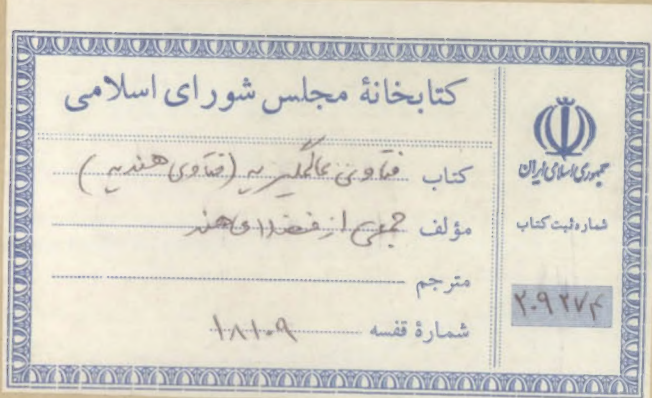 کتابخانهٔ مجلس شورای اسلامی
کتاب فتاوی عالمگیریه (فتاوی هندیه)
مؤلف جمعی از فضلای هند
مترجم
شمارهٔ قفسه ۱۸۱۰۹
جمهوری اسلامی ایران
شماره ثبت کتاب
۲۰۹۲۷۴